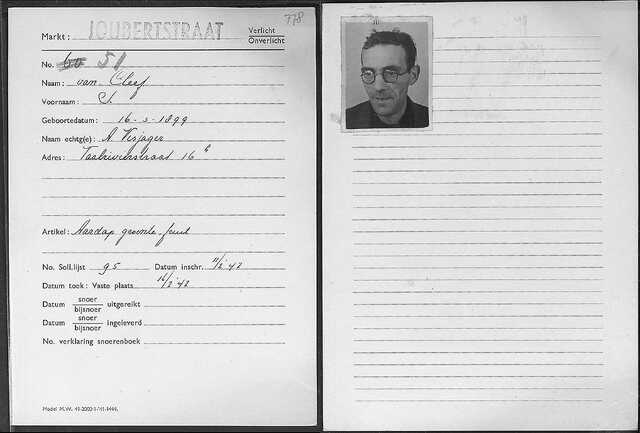 778
Markt: JOUBERTSTRAAT Verlicht
Onverlicht
No. 60 51
Naam: van Cleef
Voornaam: S.
Geboortedatum: 16-3-1899
Naam echtg(e): A. Verjager
Adres: Taalrivierstraat 16 h
Artikel: Aardap groente. fruit
No. Soll.lijst 95 Datum inschr. 11/2 '42
Datum toek: Vaste plaats 11/2 '42
Datum snoer
bijsnoer uitgereikt
Datum snoer
bijsnoer ingeleverd
No. verklaring snoerenboek
Model M.W.